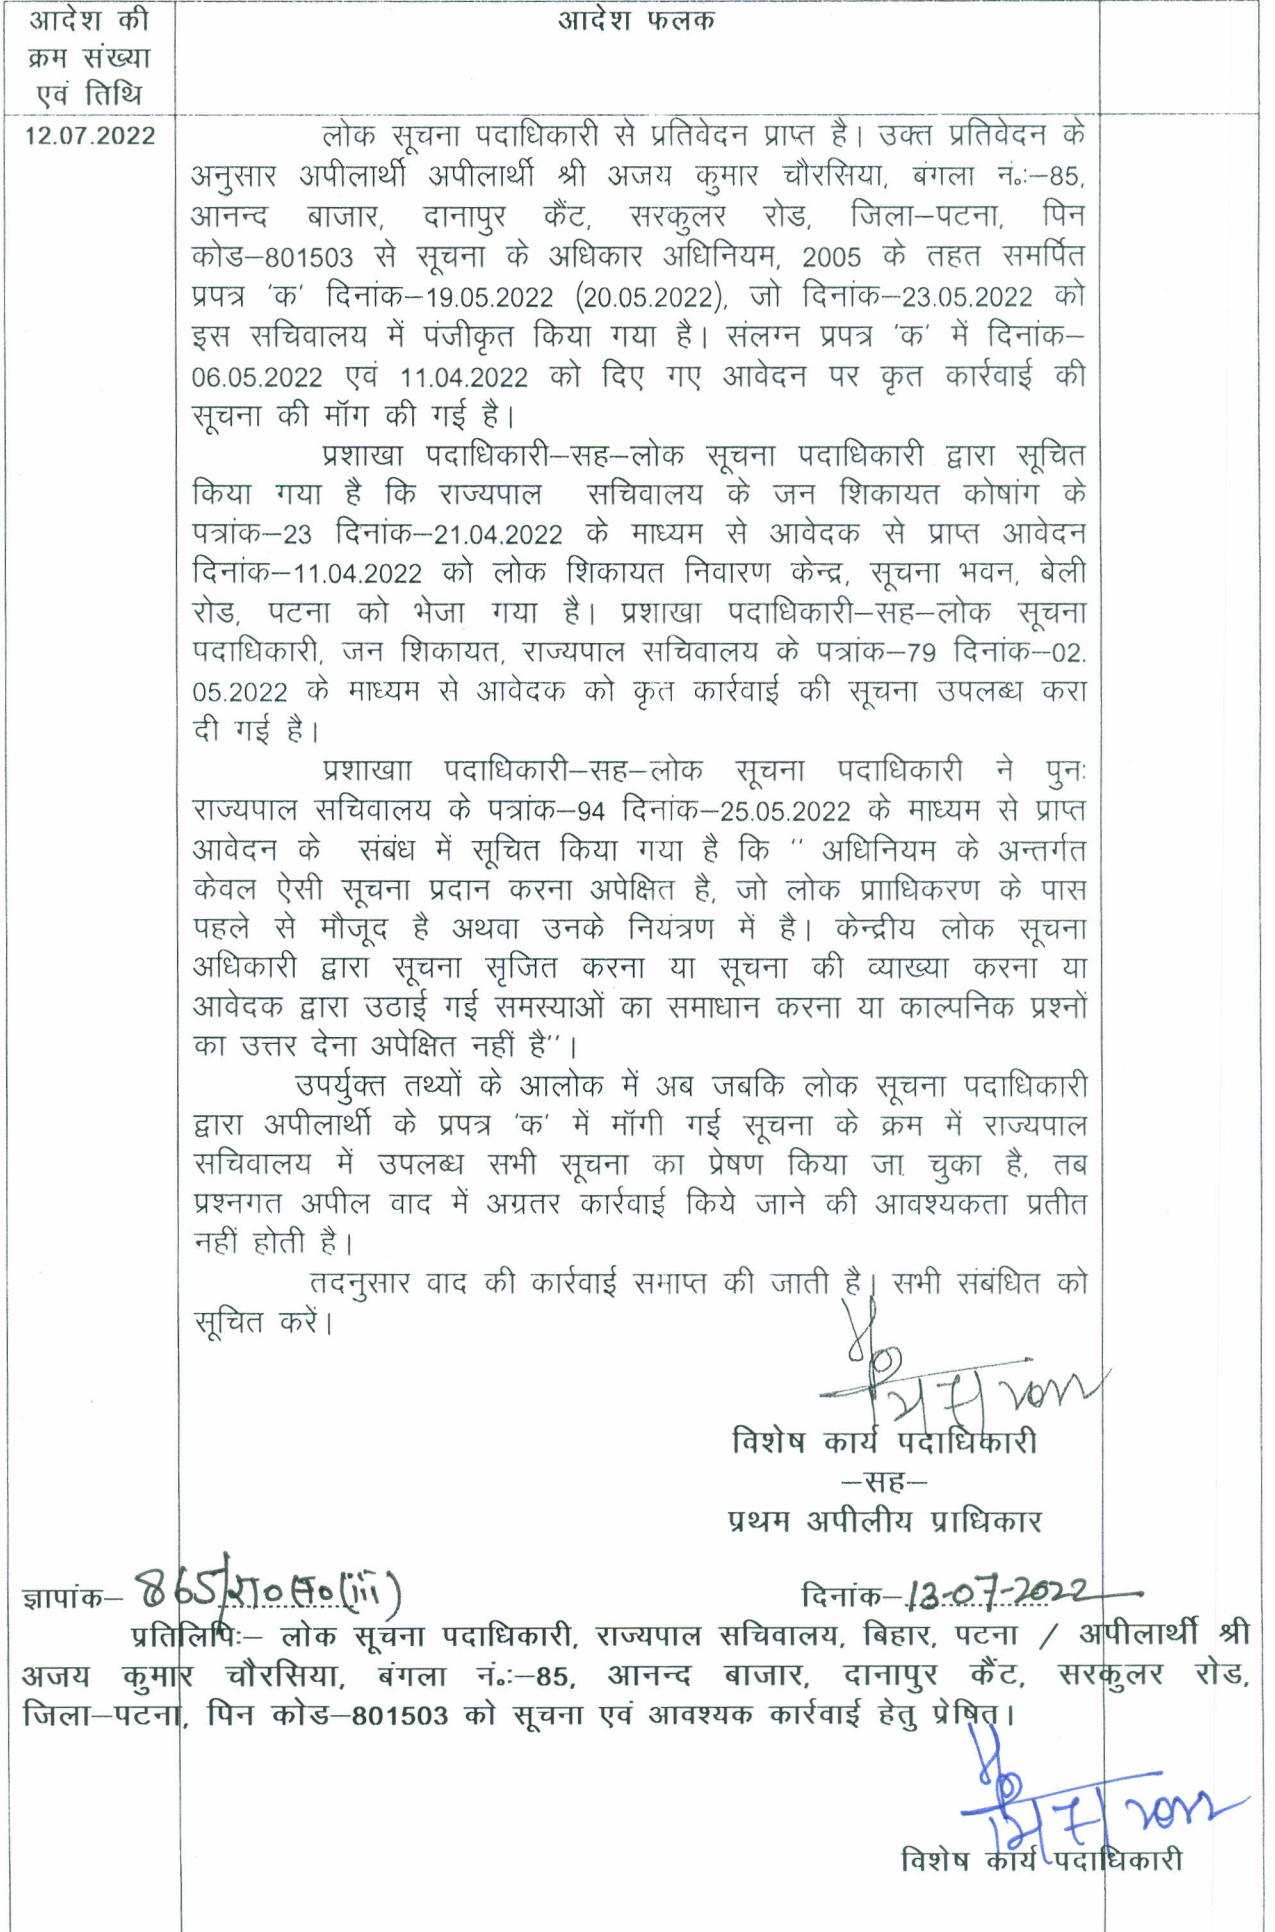 आदेश की
क्रम संख्या
एवं तिथि
आदेश फलक
12.07.2022
लोक सूचना पदाधिकारी से प्रतिवेदन प्राप्त है। उक्त प्रतिवेदन के
अनुसार अपीलार्थी अपीलार्थी श्री अजय कुमार चौरसिया, बंगला नं०:–85,
आनन्द बाजार, दानापुर कैंट, सरकुलर रोड, जिला–पटना, पिन
कोड–801503 से सूचना के अधिकार अधिनियम, 2005 के तहत समर्पित
प्रपत्र 'क' दिनांक–19.05.2022 (20.05.2022), जो दिनांक–23.05.2022 को
इस सचिवालय में पंजीकृत किया गया है। संलग्न प्रपत्र 'क' में दिनांक–
06.05.2022 एवं 11.04.2022 को दिए गए आवेदन पर कृत कार्रवाई की
सूचना की मॉग की गई है।
प्रशाखा पदाधिकारी–सह–लोक सूचना पदाधिकारी द्वारा सूचित
किया गया है कि राज्यपाल सचिवालय के जन शिकायत कोषांग के
पत्रांक–23 दिनांक–21.04.2022 के माध्यम से आवेदक से प्राप्त आवेदन
दिनांक–11.04.2022 को लोक शिकायत निवारण केन्द्र, सूचना भवन, बेली
रोड, पटना को भेजा गया है। प्रशाखा पदाधिकारी–सह–लोक सूचना
पदाधिकारी, जन शिकायत, राज्यपाल सचिवालय के पत्रांक–79 दिनांक–02.
05.2022 के माध्यम से आवेदक को कृत कार्रवाई की सूचना उपलब्ध करा
दी गई है।
प्रशाखाा पदाधिकारी–सह–लोक सूचना पदाधिकारी ने पुनः
राज्यपाल सचिवालय के पत्रांक–94 दिनांक–25.05.2022 के माध्यम से प्राप्त
आवेदन के संबंध में सूचित किया गया है कि '' अधिनियम के अन्तर्गत
केवल ऐसी सूचना प्रदान करना अपेक्षित है, जो लोक प्रााधिकरण के पास
पहले से मौजूद है अथवा उनके नियंत्रण में है। केन्द्रीय लोक सूचना
अधिकारी द्वारा सूचना सृजित करना या सूचना की व्याख्या करना या
आवेदक द्वारा उठाई गई समस्याओं का समाधान करना या काल्पनिक प्रश्नों
का उत्तर देना अपेक्षित नहीं है''।
उपर्युक्त तथ्यों के आलोक में अब जबकि लोक सूचना पदाधिकारी
द्वारा अपीलार्थी के प्रपत्र 'क' में मॉगी गई सूचना के क्रम में राज्यपाल
सचिवालय में उपलब्ध सभी सूचना का प्रेषण किया जा चुका है, तब
प्रश्नगत अपील वाद में अग्रतर कार्रवाई किये जाने की आवश्यकता प्रतीत
नहीं होती है।
तदनुसार वाद की कार्रवाई समाप्त की जाती है। सभी संबंधित को
सूचित करें।
विशेष कार्य पदाधिकारी
–सह–
प्रथम अपीलीय प्राधिकार
ज्ञापांक– 865/रा०स०(iii) दिनांक–13-07-2022
प्रतिलिपिः– लोक सूचना पदाधिकारी, राज्यपाल सचिवालय, बिहार, पटना / अपीलार्थी श्री
अजय कुमार चौरसिया, बंगला नं०:–85, आनन्द बाजार, दानापुर कैंट, सरकुलर रोड,
जिला–पटना, पिन कोड–801503 को सूचना एवं आवश्यक कार्रवाई हेतु प्रेषित।
विशेष कार्य पदाधिकारी